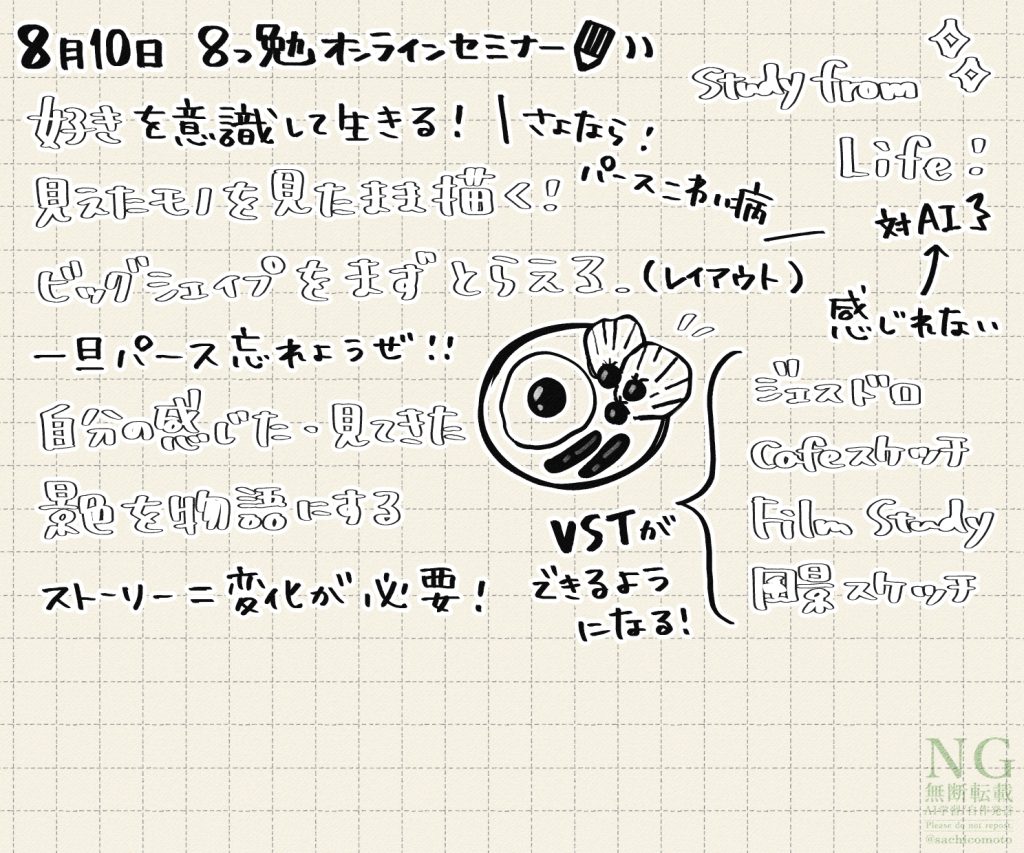 8月10日 8つ勉オンラインセミナー
好きを意識して生きる!
見えたモノを見たまま描く!
ビッグシェイプをまずとらえろ。(レイアウト)
一旦パース忘れようぜ!!
自分の感じた・見てきた
景色を物語にする
ストーリー=変化が必要!
さよなら!
パースこわい病
Study from
Life!
対AI了
感じれない
VSTが
できるよう
になる!
ジェスドロ
Cafeスケッチ
Film Study
風景スケッチ
NG
無断転載
AI学習/自作発言
Please do not repost.
@sachicomoto